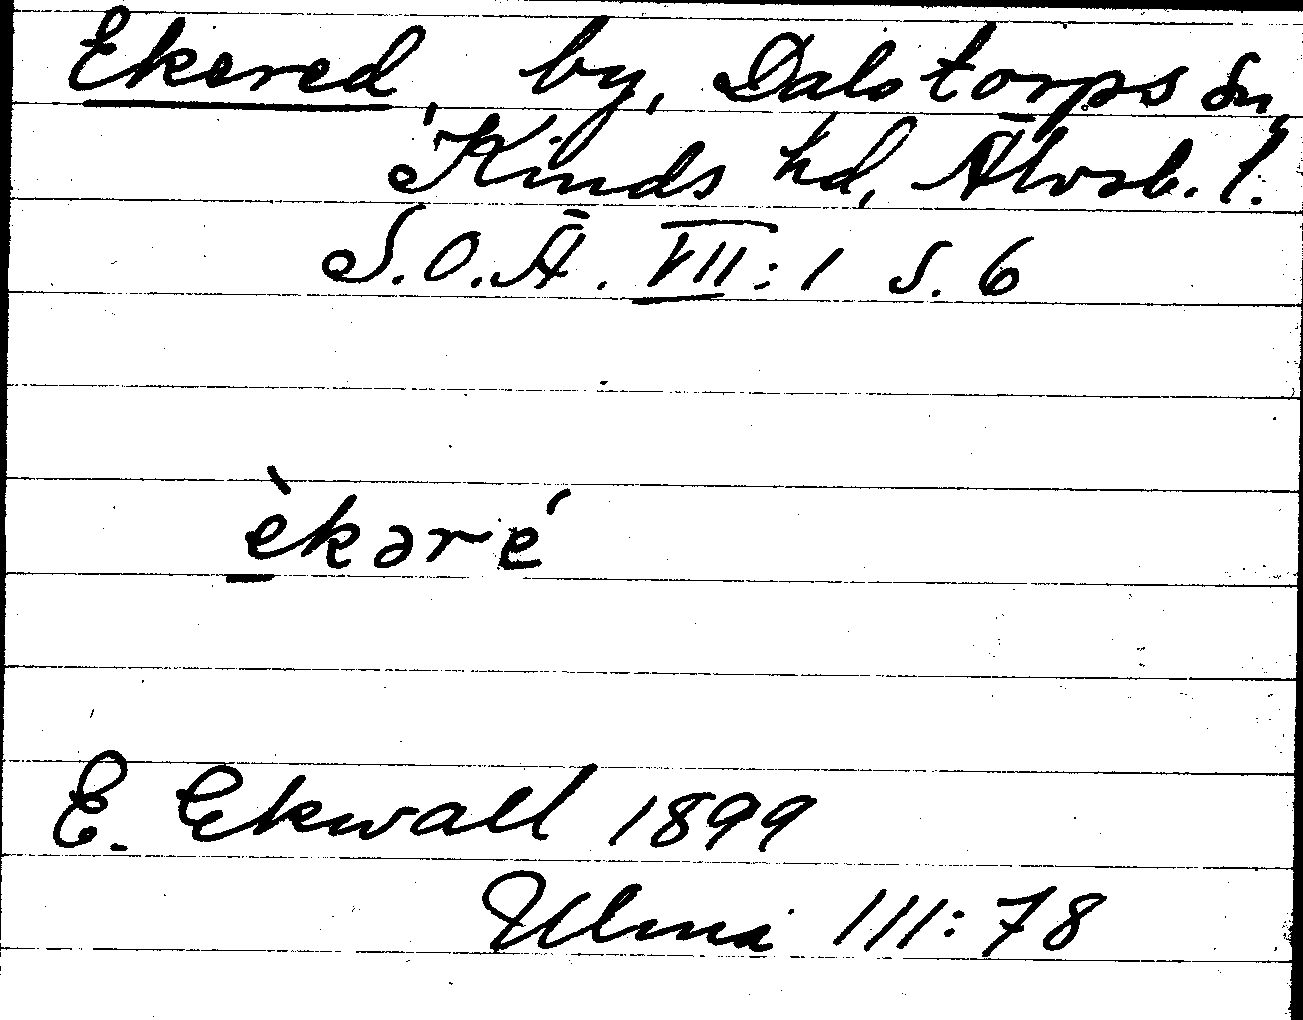 Ekered, by, Dalstorps sn,
Kinds hd, Älvsb. l.
S.O.Ä. VII:1 s. 6
èkəré
E. Ekwall 1899
Ulma 111:78